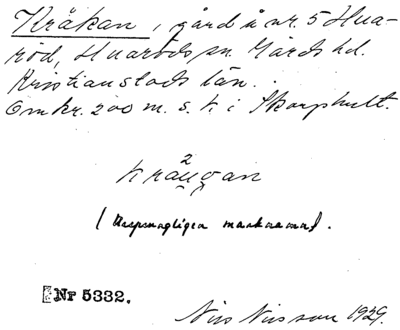 Kråkan, gård å nr. 5 Hua-
röd, Huaröds sn. Gärds hd.
Kristianstads län.
Omkr. 200 m. s. k. i Skorphult.
2
(Ursprungligen marknamn).
Nr 5332.
Nils Nilsson 1929.